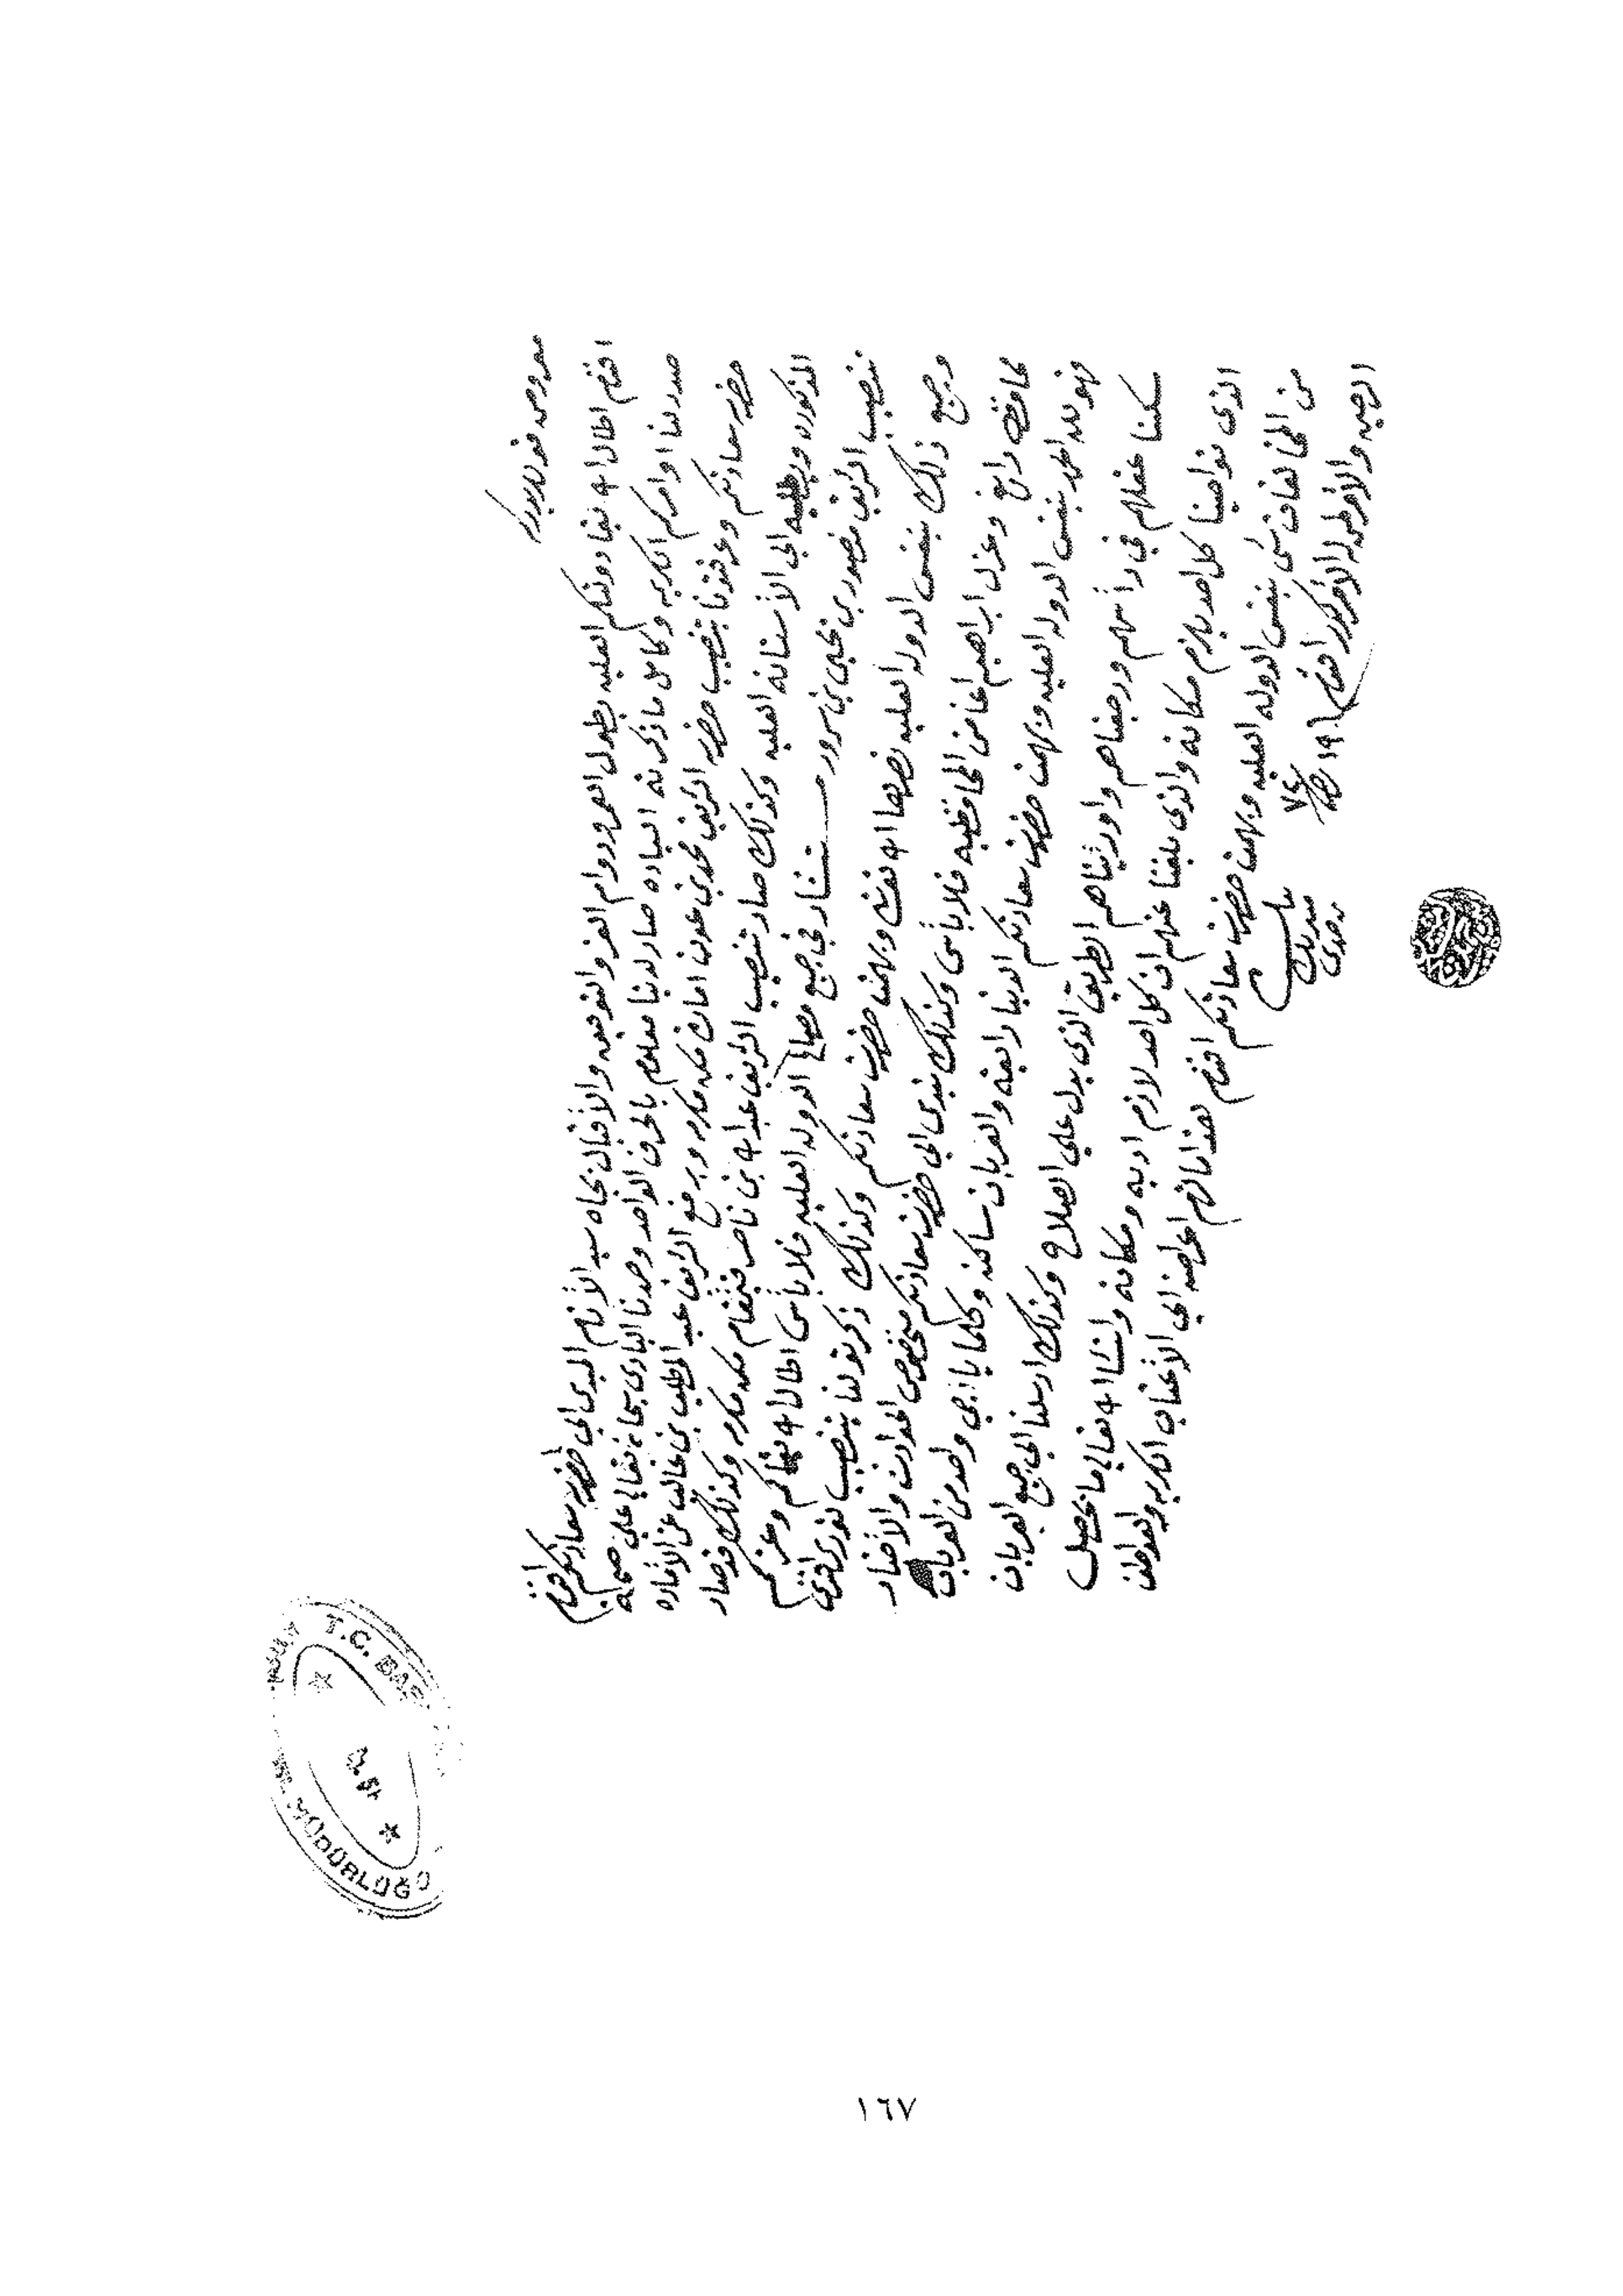 معروض قوللريدركه
المبدى الى حضرة سعادتكم افندم
افندم اطال الله بقا دولتكم العليه بطول العمر ودوام العز والتوفيق والأقبال بجاه سيد الأنام
صدر لنا اوامركم الكريمه وكامل ما ذكرته السياده صار لدينا معلوم بالحرف الواحد وحمدنا الباري سبحانه تعالى على صحة
حضرة سعادتكم وعرفتونا بتنصيب حضرة الشريف محمد بن عون امارت مكه مكرمه وبرفع الشريف عبد المطلب بن غالب عن الأماره
المذكوره وبطلبه الى الأستانه العليه وكذلك صار تنصيب الشريف عبدالله بن ناصر قيمقام مكه مكرمه وكذلك قد صار
بتنصيب الشريف منصور بن يحيى بن سرور مستشار في جميع مصالح الدوله العليه فلا بأس اطال الله بقاكم وعزكم
وجميع ذلك بنفس الدوله العليه نصرها الله تعالى وبهمت حضرت سعادتكم وكذلك ذكرتوا لنا بتنصيب افندي
محافظ رابغ وعزل ابراهيم اغا من المحافظيه فلا بأس وكذلك نبدي الى حضرت سعادتكم بخصوص الحوادث والأخبار
فهو لله الحمد بنفس الدوله العليه وبهمت حضرت سعادتكم الدنيا رايقه والعربان ساكنه وكلما يا اجي واحد من العربان
مسكنا عقلهم في رأسهم ورجعناهم واوريناهم الطريق الذي يدل على الصلاح وكذلك ارسلنا الى جميع العربان
الذي نواحينا كل احد يلزم مكانه والذي بلغنا عنهم ان كل احد لازم ادبه ومكانه وانشاء الله تعالى ما يحصل
من المخالفات شي بنفس الدوله العليه وبهمت حضرت سعادتكم افندم هذا ما لزم اعراضه الى الأعتاب الكريمه والعواطف
الرحيمه والأمر لمن له الأمر كدر افندم ١٩
٧٤
T.C. BAŞ
MÜDÜRLÜĞÜ
١٦٧